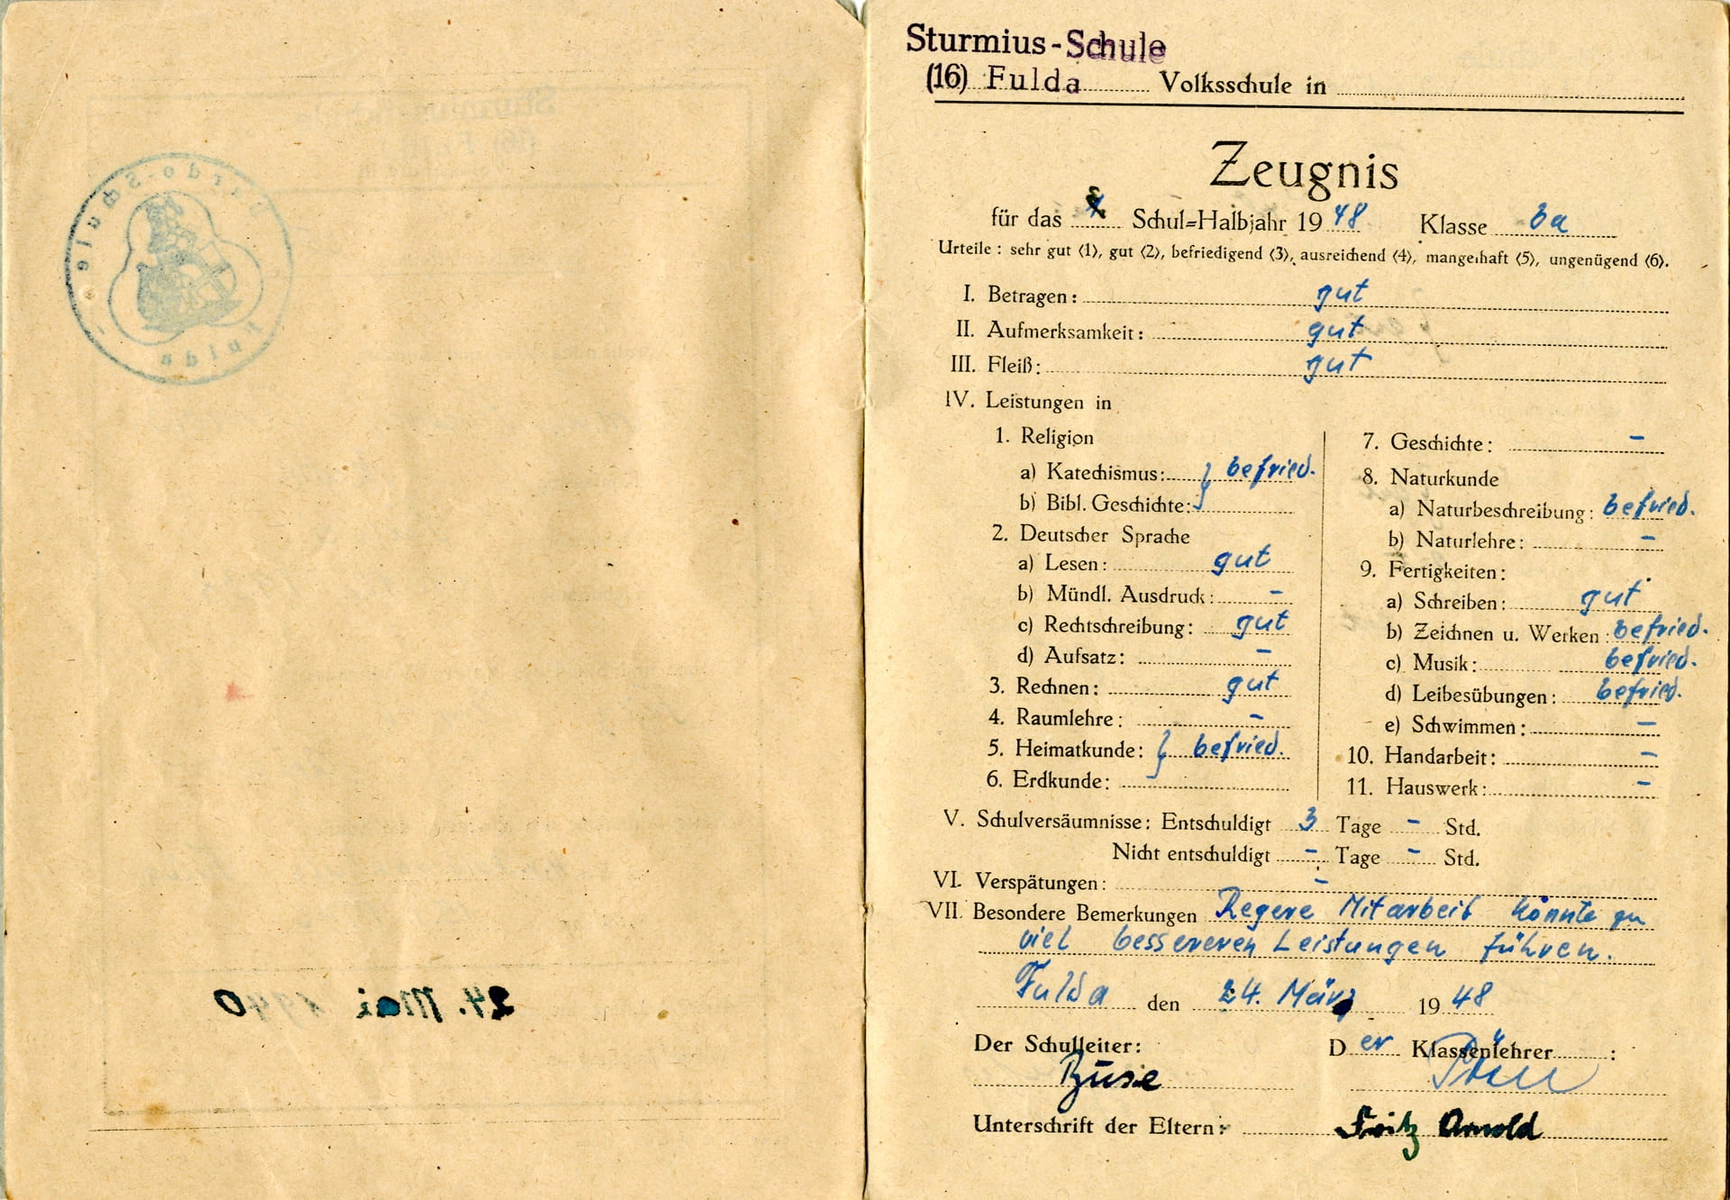 24. Mai 1940
Sturmius-Schule
(16) Fulda Volksschule in
Zeugnis
für das Schul=Halbjahr 1948 Klasse 3a
Urteile: sehr gut (1), gut (2), befriedigend (3), ausreichend (4), mangelhaft (5), ungenügend (6).
I. Betragen: gut
II. Aufmerksamkeit: gut
III. Fleiß: gut
IV. Leistungen in
1. Religion
a) Katechismus: } befried.
b) Bibl. Geschichte:
2. Deutscher Sprache
a) Lesen: gut
b) Mündl. Ausdruck: -
c) Rechtschreibung: gut
d) Aufsatz: -
3. Rechnen: gut
4. Raumlehre: -
5. Heimatkunde: } befried.
6. Erdkunde:
7. Geschichte: -
8. Naturkunde
a) Naturbeschreibung: befried.
b) Naturlehre: -
9. Fertigkeiten:
a) Schreiben: gut
b) Zeichnen u. Werken: befried.
c) Musik: befried.
d) Leibesübungen: befried.
e) Schwimmen: -
10. Handarbeit: -
11. Hauswerk: -
V. Schulversäumnisse: Entschuldigt 3 Tage - Std.
Nicht entschuldigt - Tage - Std.
VI. Verspätungen: -
VII. Besondere Bemerkungen Regere Mitarbeit könnte zu
viel bessereren Leistungen führen.
Fulda den 24. März 1948
Der Schulleiter: Der Klassenlehrer:
Buse
Unterschrift der Eltern: Fritz Arnold